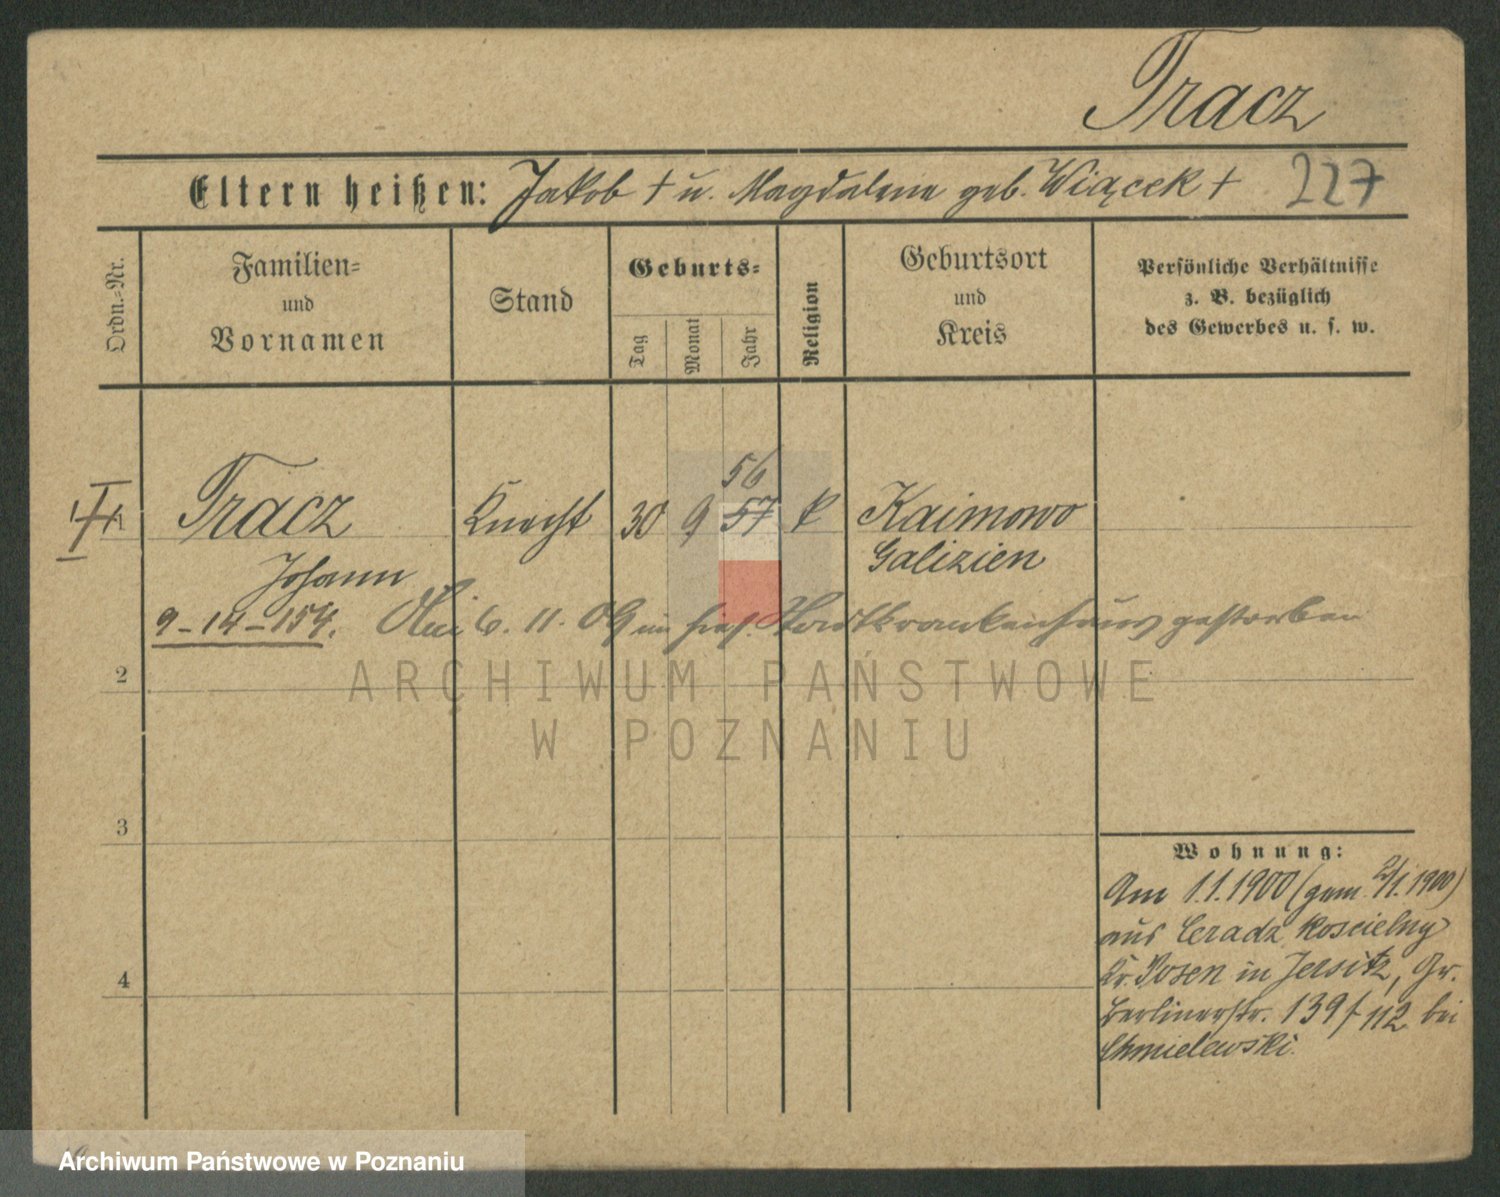 Tracz
Eltern heißen: Jakob † u. Magdalena geb. Wiącek † 227
Ordn.-Nr.
Familien- und Vornamen
Stand
Geburts-
Tag
Monat
Jahr
Religion
Geburtsort und Kreis
Persönliche Verhältnisse
z. B. bezüglich
des Gewerbes u. s. w.
56
1 Tracz Knecht 30 9 57 k Kaimowo
Johann Galizien
9-14-154. 6. 11. 09 im hies. Stadtkrankenhaus gestorben
2
ARCHIWUM PAŃSTWOWE
W POZNANIU
3
Wohnung:
Am 1.1.1900 (gem. 2/1. 1900)
aus Ceradz koscielny
Kr. Posen in Jersitz, Gr.
Berlinerstr. 139/112 bei
Chmielewski.
4
Archiwum Państwowe w Poznaniu